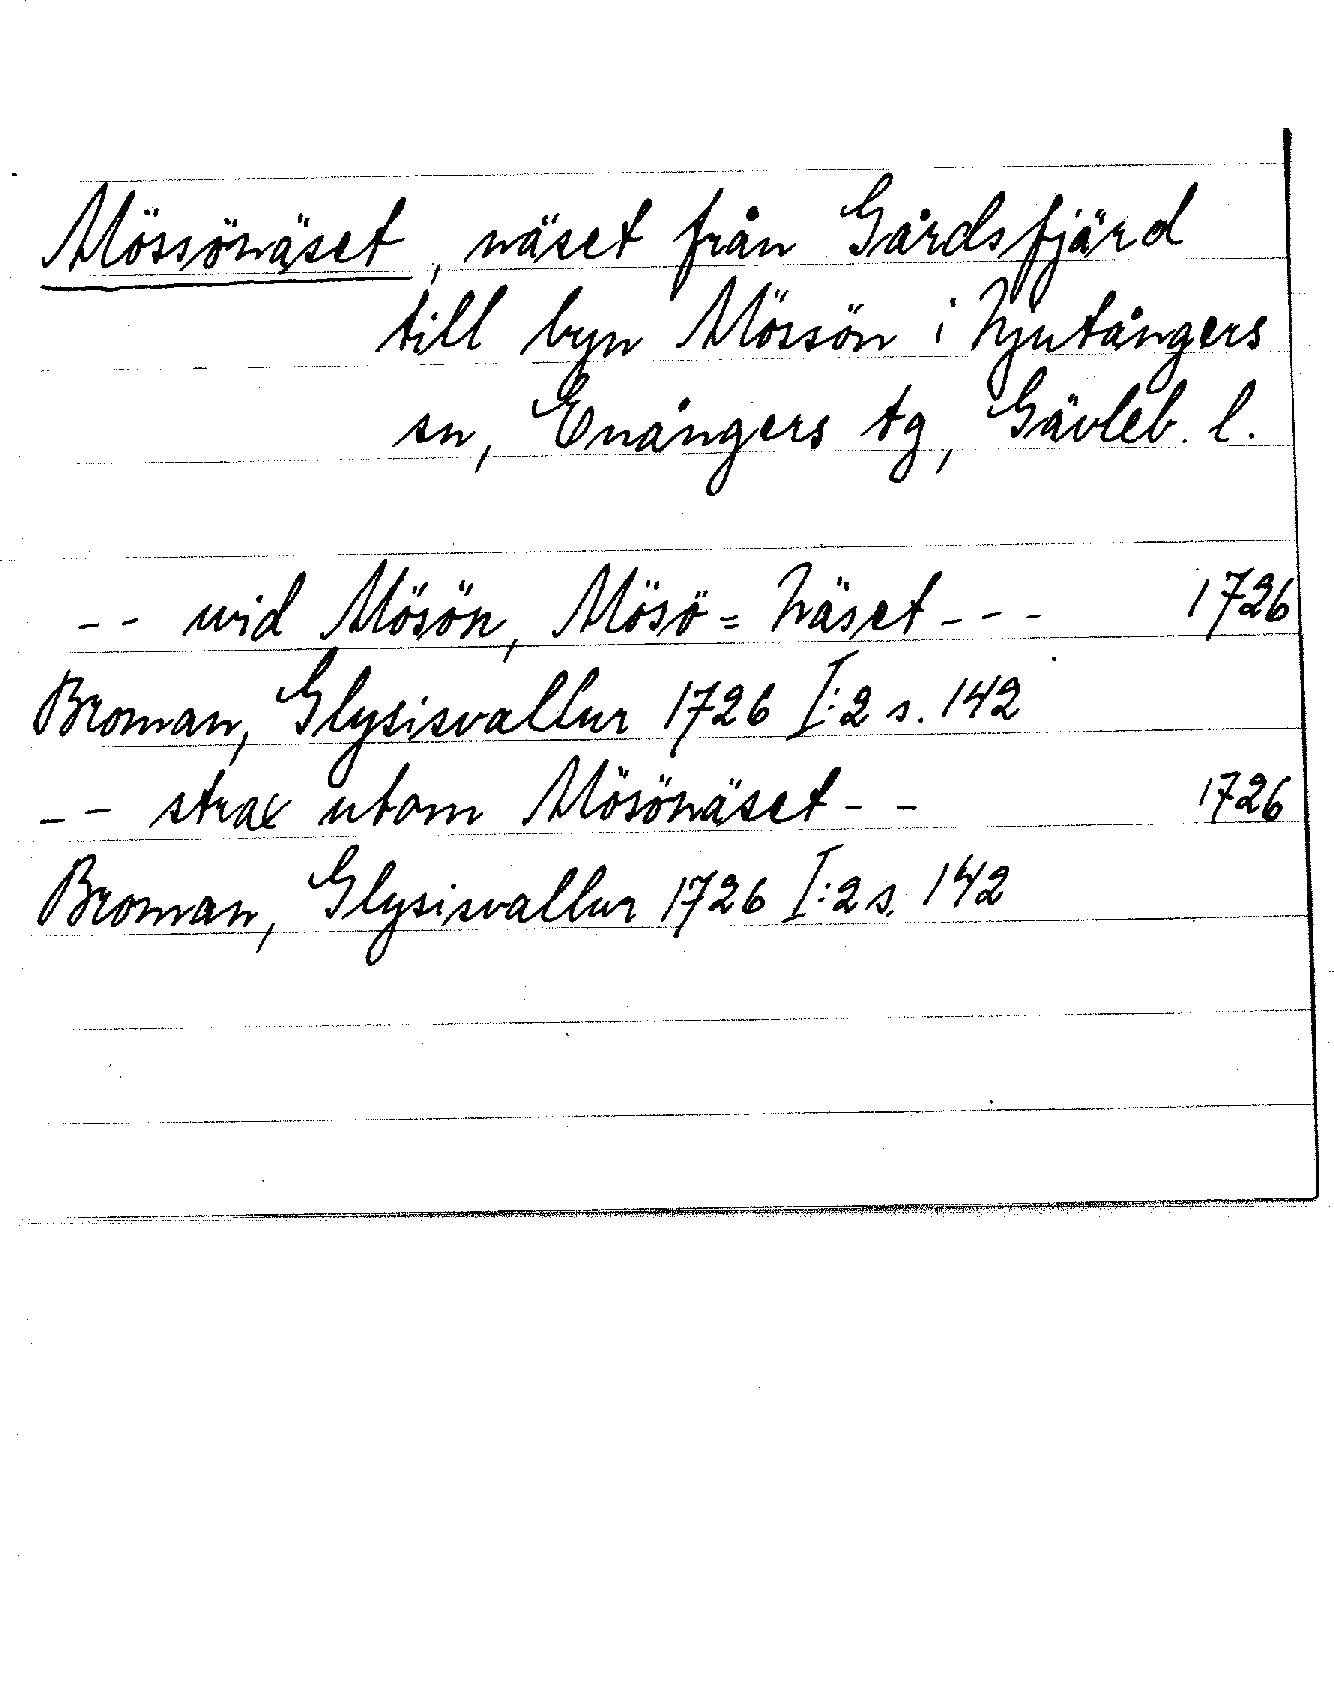 Mössönäset, näset från Gårdsfjärd
till byn Mössön i Njutångers
sn, Enångers tg, Gävleb. l.
-- wid Mösön, Mösö=Näset --- 1726
Broman, Glysisvallur 1726 I:2 s. 142
-- strax utom Mösönäset -- 1726
Broman, Glysisvallur 1726 I:2 s. 142